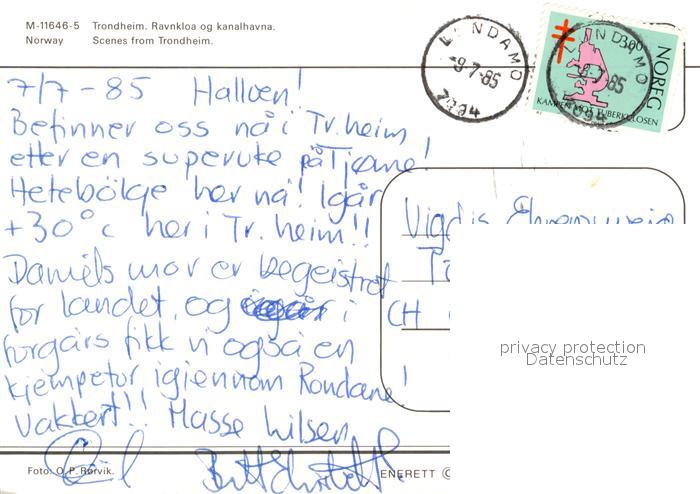 M-11646-5 Trondheim. Ravnkloa og kanalhavna.
Norway Scenes from Trondheim.
LINDAMO
-9-7-85
7094
NOREG
300
KAMPEN MOT TUBERKULOSEN
7/7-85 Halloen!
Befinner oss nå i Tr.heim
etter en superuke på Tjøme!
Hetebölge her nå! Igår
+30°c her i Tr.heim!!
Daniels mor er begeistret
for landet, og i
forgårs fikk vi også en
kjempetur igjennom Rondane!
Vakkert!! Masse hilsen
Vigdis
CH
privacy protection
Datenschutz
Foto: O. P. Rørvik.
ENERETT ©